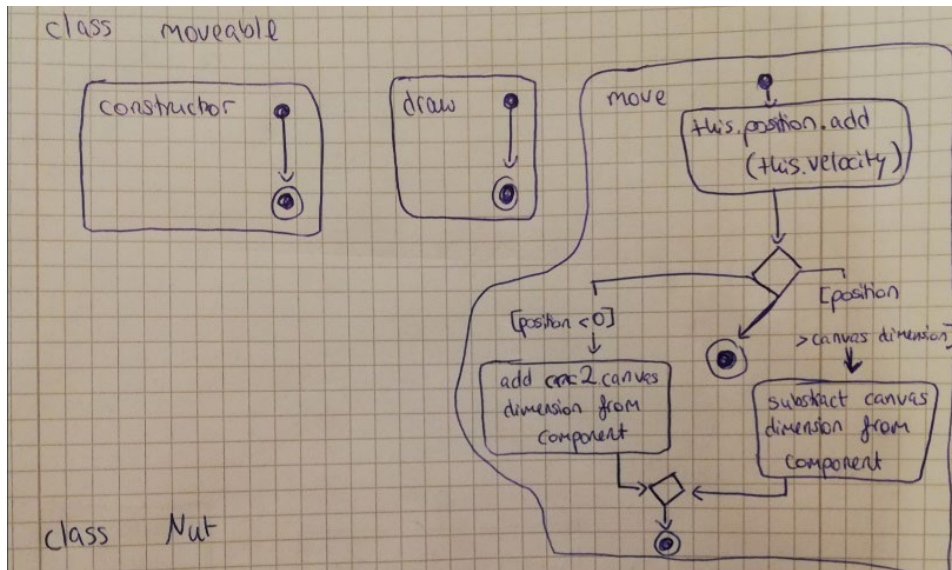 class moveable
constructor
draw
move
this.position.add
(this.velocity)
[position < 0]
[position
> canvas dimension]
add crc2.canvas
dimension from
component
substract canvas
dimension from
component
class Nut